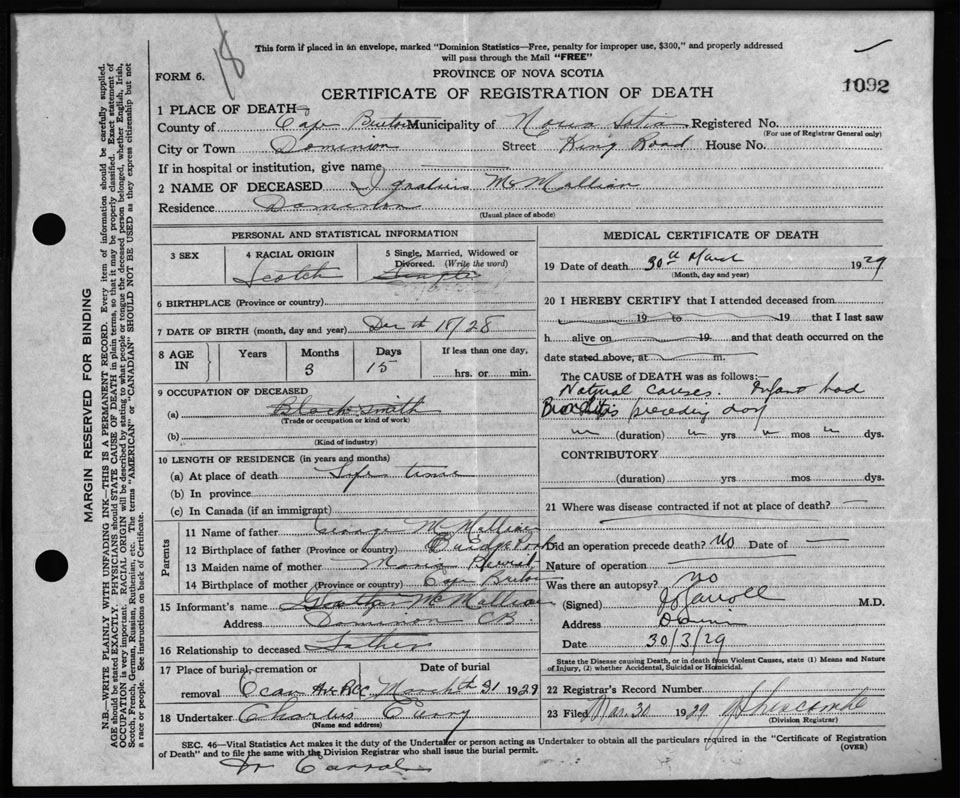 This form if placed in an envelope, marked "Dominion Statistics—Free, penalty for improper use, $300," and properly addressed
will pass through the Mail "FREE"
18
FORM 6.
PROVINCE OF NOVA SCOTIA
1092
CERTIFICATE OF REGISTRATION OF DEATH
1 PLACE OF DEATH—
County of Cape Breton Municipality of Nova Scotia Registered No.
(For use of Registrar General only)
City or Town Dominion Street King Road House No.
If in hospital or institution, give name
2 NAME OF DECEASED Ignatius McMullian
Residence Dominion
(Usual place of abode)
PERSONAL AND STATISTICAL INFORMATION
3 SEX 4 RACIAL ORIGIN 5 Single, Married, Widowed or Divorced. (Write the word)
Scotch Single
6 BIRTHPLACE (Province or country)
7 DATE OF BIRTH (month, day and year) Dec th 18/28
8 AGE IN Years Months Days If less than one day,
3 15 hrs. or min.
9 OCCUPATION OF DECEASED
(a) Black Smith
(Trade or occupation or kind of work)
(b)
(Kind of industry)
10 LENGTH OF RESIDENCE (in years and months)
(a) At place of death Life time
(b) In province
(c) In Canada (if an immigrant)
Parents
11 Name of father George McMullian
12 Birthplace of father (Province or country) Bridge Port
13 Maiden name of mother
14 Birthplace of mother (Province or country) Cape Breton
15 Informant's name McMullian
Address Dominion CB
16 Relationship to deceased Father
17 Place of burial, cremation or Date of burial
removal March th 31 1929
18 Undertaker Charlies Curry
(Name and address)
MEDICAL CERTIFICATE OF DEATH
19 Date of death 30th March 1929
(Month, day and year)
20 I HEREBY CERTIFY that I attended deceased from
19 to 19 that I last saw
h alive on 19 and that death occurred on the
date stated above, at m.
The CAUSE OF DEATH was as follows:—
Natural causes. Infant had
Bronchitis preceding day
(duration) yrs mos dys.
CONTRIBUTORY
(duration) yrs mos dys.
21 Where was disease contracted if not at place of death?
Did an operation precede death? No Date of
Nature of operation
Was there an autopsy? No
(Signed) Carroll M.D.
Address
Date 30/3/29
State the Disease causing Death, or in death from Violent Causes, state (1) Means and Nature
of Injury, (2) whether Accidental, Suicidal or Homicidal.
22 Registrar's Record Number
23 Filed Mar. 30 1929
(Division Registrar)
SEC. 46—Vital Statistics Act makes it the duty of the Undertaker or person acting as Undertaker to obtain all the particulars required in the "Certificate of Registration
of Death" and to file the same with the Division Registrar who shall issue the burial permit. (OVER)
Dr Carroll
MARGIN RESERVED FOR BINDING
N.B.—WRITE PLAINLY WITH UNFADING INK—THIS IS A PERMANENT RECORD. Every item of information should be carefully supplied.
AGE should be stated EXACTLY. PHYSICIANS should STATE CAUSE OF DEATH in plain terms, so that it may be properly classified. Exact statement of
OCCUPATION is very important. RACIAL ORIGIN will be described by stating to what people or tongue the deceased person belonged, whether English, Irish,
Scotch, French, German, Russian, Ruthenian, etc. The terms "AMERICAN" or "CANADIAN" SHOULD NOT BE USED as they express citizenship but not
a race or people. See instructions on back of Certificate.